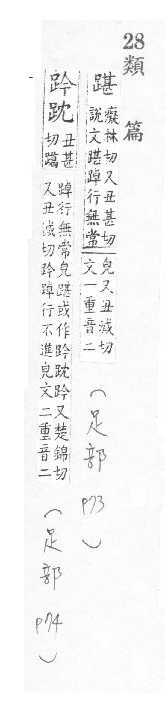 28
類篇
踸癡林切又丑甚切
說文踸踔行無常皃又丑減切
文一重音二
(足部 p73)
跉䟴丑甚切
踔行無常皃踸或作跉䟴跉又楚錦切
又丑減切跉踔行不進皃文二重音二
(足部 p74)